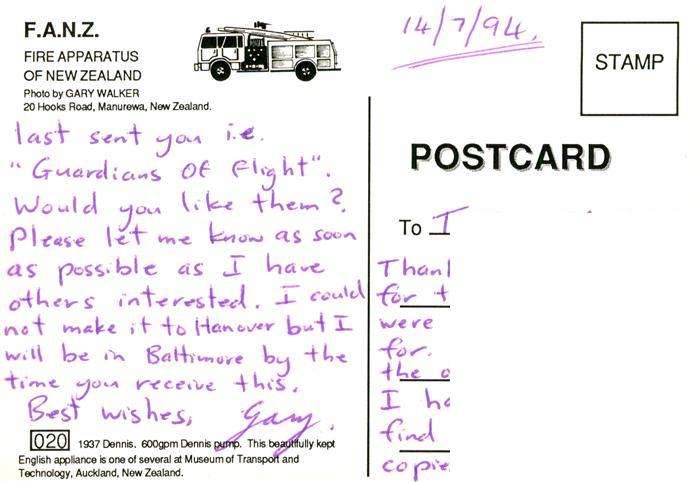 F.A.N.Z.
FIRE APPARATUS
OF NEW ZEALAND
Photo by GARY WALKER
20 Hooks Road, Manurewa, New Zealand.
last sent you i.e.
"Guardians Of Flight".
Would you like them?
Please let me know as soon
as possible as I have
others interested. I could
not make it to Hanover but I
will be in Baltimore by the
time you receive this.
Best wishes, Gary.
020 1937 Dennis. 600gpm Dennis pump. This beautifully kept
English appliance is one of several at Museum of Transport and
Technology, Auckland, New Zealand.
14/7/94.
STAMP
POSTCARD
To
for
were
for.
the
I
find